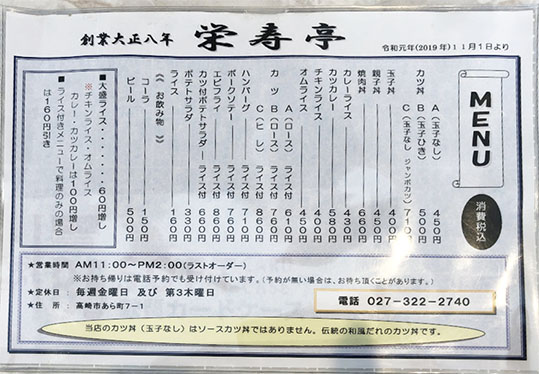 創業大正八年 栄寿亭
令和元年(2019年)11月1日より
MENU
消費税込
カツ丼 A (玉子なし) 450
B (玉子ひき) 500
C (玉子なし ジャンボカツ) 710
玉子丼 400
親子丼 450
焼肉丼 660
カレーライス 430
カツカレー 588
チキンライス
オムライス 450
カツ A (ロース) ライス付 610
B (ロース) ライス付 760
C (ヒレ) ライス付 860
ハンバーグ ライス付 710
ポークソテー ライス付 760
エビフライ ライス付 860
カツ付ポテトサラダ ライス付 660
ポテトサラダ 330
ライス 160
《お飲み物》
コーラ 150
ビール 505
■大盛ライス・・・・・・60円増し
※チキンライス・オムライス
カレー・カツカレーは100円増し
■ライス付きメニューで料理のみの場合
は160円引き
★営業時間 AM11:00～PM2:00(ラストオーダー)
※お持ち帰りは電話予約でも受け付けています。(予約が無い場合は、お待ち頂くことがあります。)
★定休日: 毎週金曜日 及び 第3木曜日
★住 所: 高崎市あら町7-1
電話 027-322-2740
当店のカツ丼(玉子なし)はソースカツ丼ではありません。伝統の和風だれのカツ丼です。